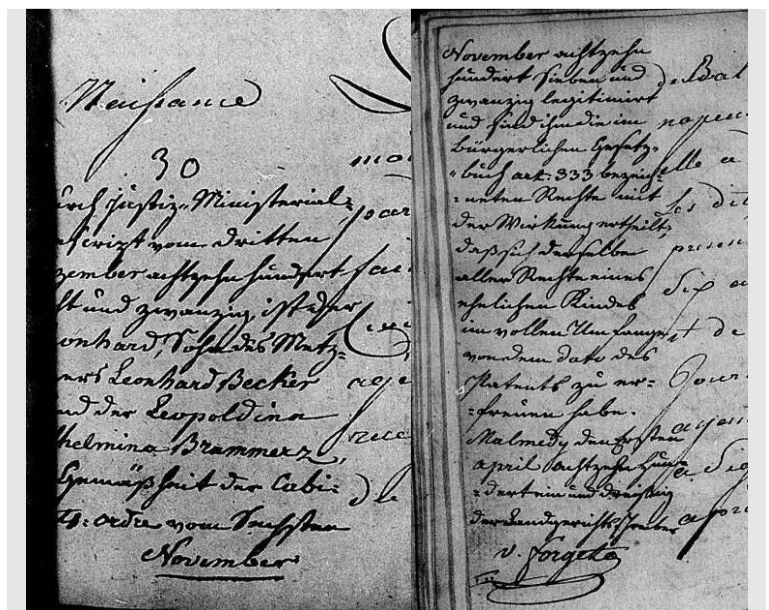 Naissance
30
urch Justiz-Ministerial-
escript vom dritten
zember achtzehn hundert
ht und zwanzig, ist der
onhard, Sohn des Metz-
gers Leonhard Becker
nd der Leopoldina
helmina Brammerz,
Gemäßheit der Cabi-
ts-ordre vom Sechsten
November
November achtzehn
hundert sieben und
zwanzig legitimirt
und sind ihm die im
bürgerlichen Gesetz-
-buch art: 333 bezeich-
-neten Rechte mit
der Wirkung ertheilt,
daß sich derselbe
aller Rechte eines
ehelichen Kindes
im vollen Umfange
von dem dato des
Patents zu er-
-freuen habe.
Malmedy den Ersten
april achtzehn hun-
-dert ein und dreißig
der Landgerichts Schreiber